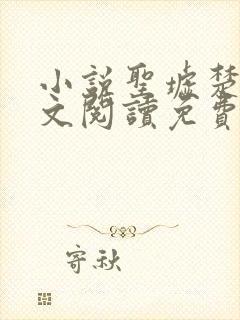 小説聖墟楚
文閱讀免費
寄秋